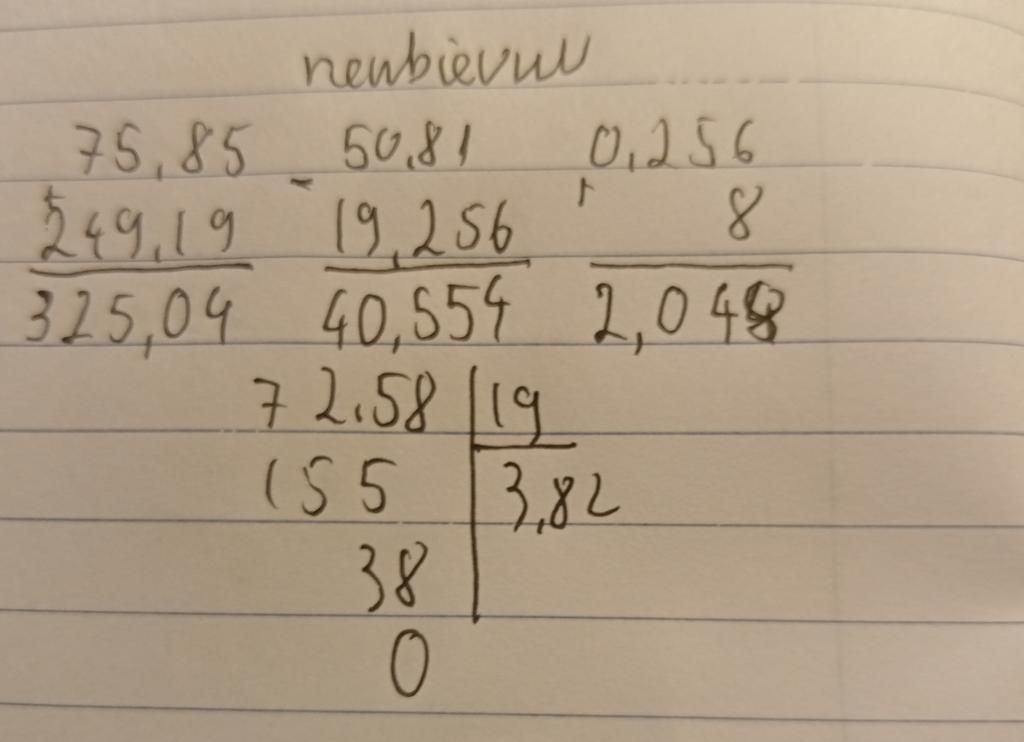 75,85 - 50,81 0,256
+ 249,19 19,256 8
325,04 40,554 2,048
72,58 19
155 3,82
38
0